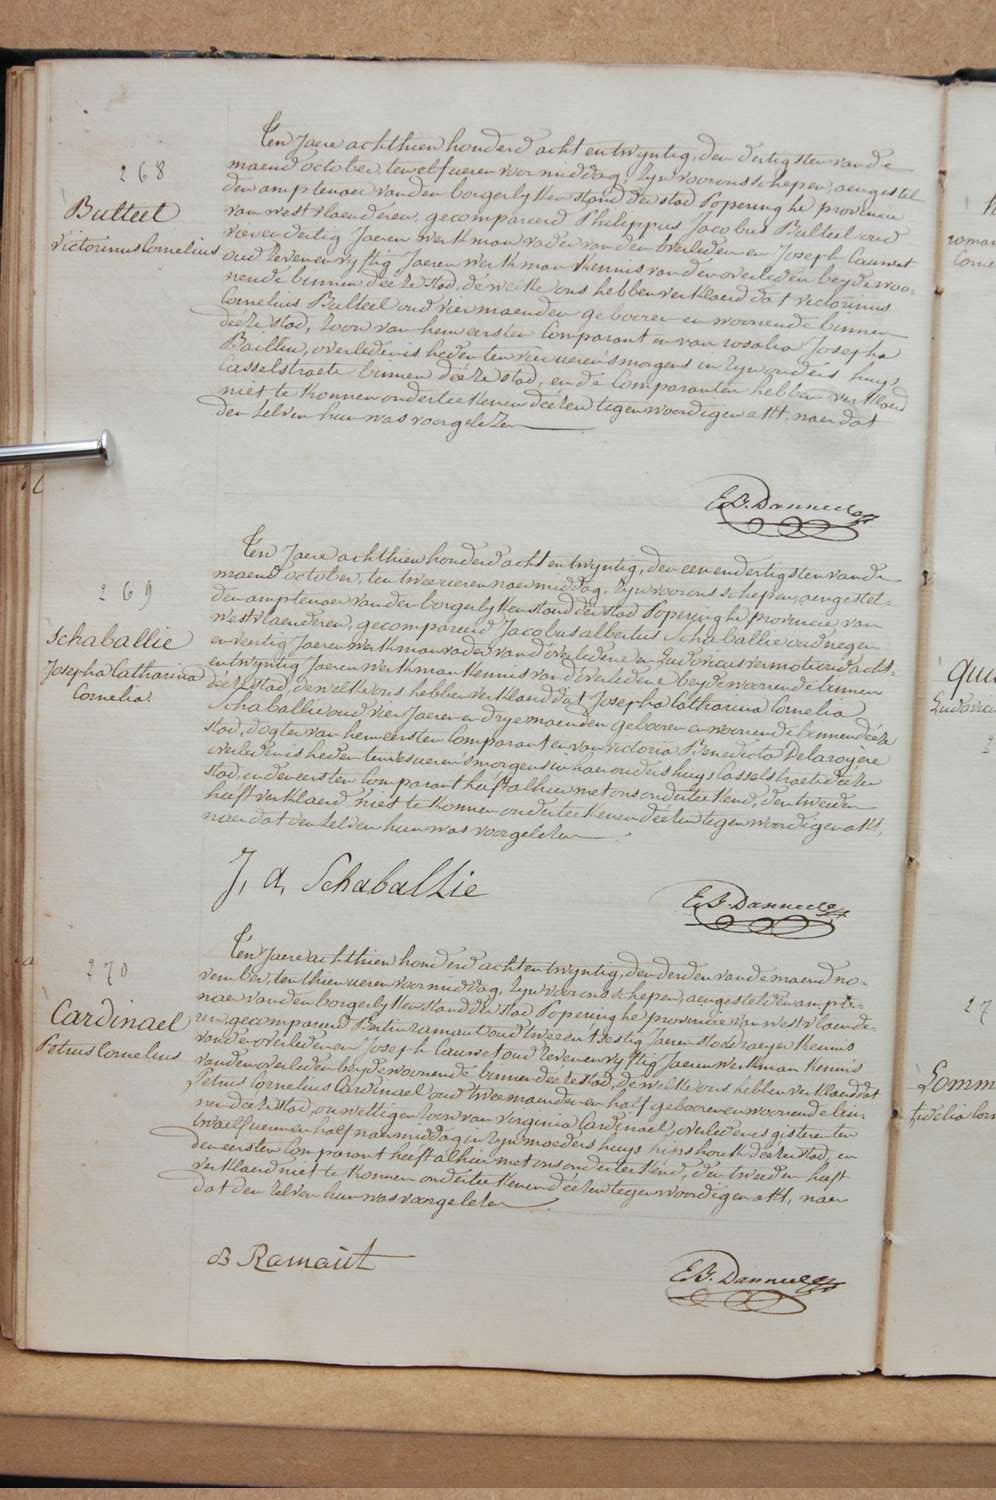 268
Bulteel
victorinus Cornelius
Ten Jaere achthien honderd acht en twyntig, den dertigsten van de
maend october, ten elf ueren voormiddag, zyn voor ons schepen, aengestel-
den amptenaer van den borgerlyken stand der stad Poperinghe provincie
van westvlaenderen, gecompareerd Philippus Jacobus Bulteel oud
vier en dertig Jaeren werkman vader van den overleden en Joseph Cauwet
oud zeven en vyftig Jaeren werkman kennis van den overleden beyde woo-
nende binnen deéze stad, dewelke ons hebben verklaerd dat victorinus
Cornelius Bulteel oud vier maenden geboren en woonende binnen
deéze stad, zoon van hem eersten Comparant en van rosalia Josepha
Baillieu, overleden is heden ten vier ueren s'morgens in zyn ouders huys
Casselstraete binnen deéze stad, en de Comparanten hebben verklaerd
niet te konnen onderteekenen deézen tegenwoordigen akt, naer dat
den zelven hun was voorgelezen
E.B. Danneel
269
Schaballie
Josepha Catharina
Cornelia
Ten Jaere achthien honderd acht en twyntig, den een en dertigsten van de
maend october, ten twee ueren naermiddag, zyn voor ons schepen, aengestel-
den amptenaer van den borgerlyken stand der stad Poperinghe provincie van
westvlaenderen, gecompareerd Jacobus albertus Schaballie oud negen
en veertig Jaeren werkman vader van d'overledene en Ludovicus vermote oud acht-
en twyntig Jaeren werkman kennis van d'overledene beyde woonende binnen
deéze stad, dewelke ons hebben verklaerd dat Josepha Catharina Cornelia
Schaballie oud vier Jaeren en drye maenden geboren en woonende binnen deéze
stad, dogter van hem eersten Comparant en van victoria Benedicta Delaroyere
overleden is heden ten ses ueren s'morgens in haer ouders huys Casselstraete deézer
stad, en den eersten Comparant heéft alhier met ons onderteekend, den tweeden
heéft verklaerd niet te konnen onderteekenen deézen tegenwoordigen akt,
naer dat den zelven hun was voorgelezen
J, a, Schaballie
E.B. Danneel
270
Cardinael
Petrus Cornelius
Ten Jaere achthien honderd acht en twyntig, den derden van de maend no-
vember, ten thien ueren voormiddag, zyn voor ons schepen, aengestelden ampte-
naer van den borgerlyken stand der stad Poperinghe provincie van westvlaende-
ren, gecompareerd Bertin ramaut oud twee en tsestig Jaeren stadsraeger kennis
van den overleden en Joseph Cauwet oud zeven en vyftig Jaeren werkman kennis
van den overleden beyde woonende binnen deéze stad, dewelke ons hebben verklaerd dat
Petrus Cornelius Cardinael oud twee maenden en half geboren en woonende bin-
nen deéze stad, onwettigen zoon van virginia Cardinael, overleden is gisteren ten
twaelf ueren en half naermiddag in zyn moeders huys hinshoek deézer stad, en
den eersten Comparant heéft alhier met ons onderteekend, den tweeden heéft
verklaerd niet te konnen onderteekenen deézen tegenwoordigen akt, naer
dat den zelven hun was voorgelezen
B Ramaút
E.B. Danneel
roman
Corne
Que
Ludovicu
27
Lomm
fidelia Corn